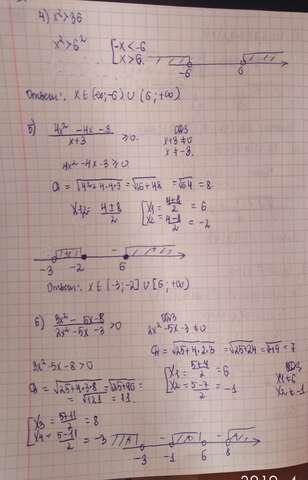 4) x² > 36
x² > 6²
[-x < -6
x > 6.
-6 6
Ответ: x ∈ (-∞; -6) ∪ (6; +∞)
5) (4x² - 4x - 3)/(x+3) ≥ 0. ОДЗ
x+3 ≠ 0
x ≠ -3.
4x² - 4x - 3 ≥ 0
D = √(4² + 4·4·3) = √(16 + 48) = √64 = 8
x₁,₂ = (4±8)/2 [x₁ = (4+8)/2 = 6
x₂ = (4-8)/2 = -2
-3 -2 6
Ответ: x ∈ [-3; -2] ∪ [6; +∞)
6) (3x² - 5x - 8)/(2x² - 5x - 3) > 0 ОДЗ
2x² - 5x - 3 ≠ 0
D = √(25 + 4·2·3) = √(25+24) = √49 = 7
3x² - 5x - 8 > 0
D = √(25 + 4·3·8) = √(25+96) =
= √121 = 11
[x₁ = (5+7)/2 = 6
x₂ = (5-7)/2 = -1
ОДЗ
x₁ ≠ 6
x₂ ≠ -1
[x₃ = (5+11)/2 = 8
x₄ = (5-11)/2 = -3
-3 -1 6 8